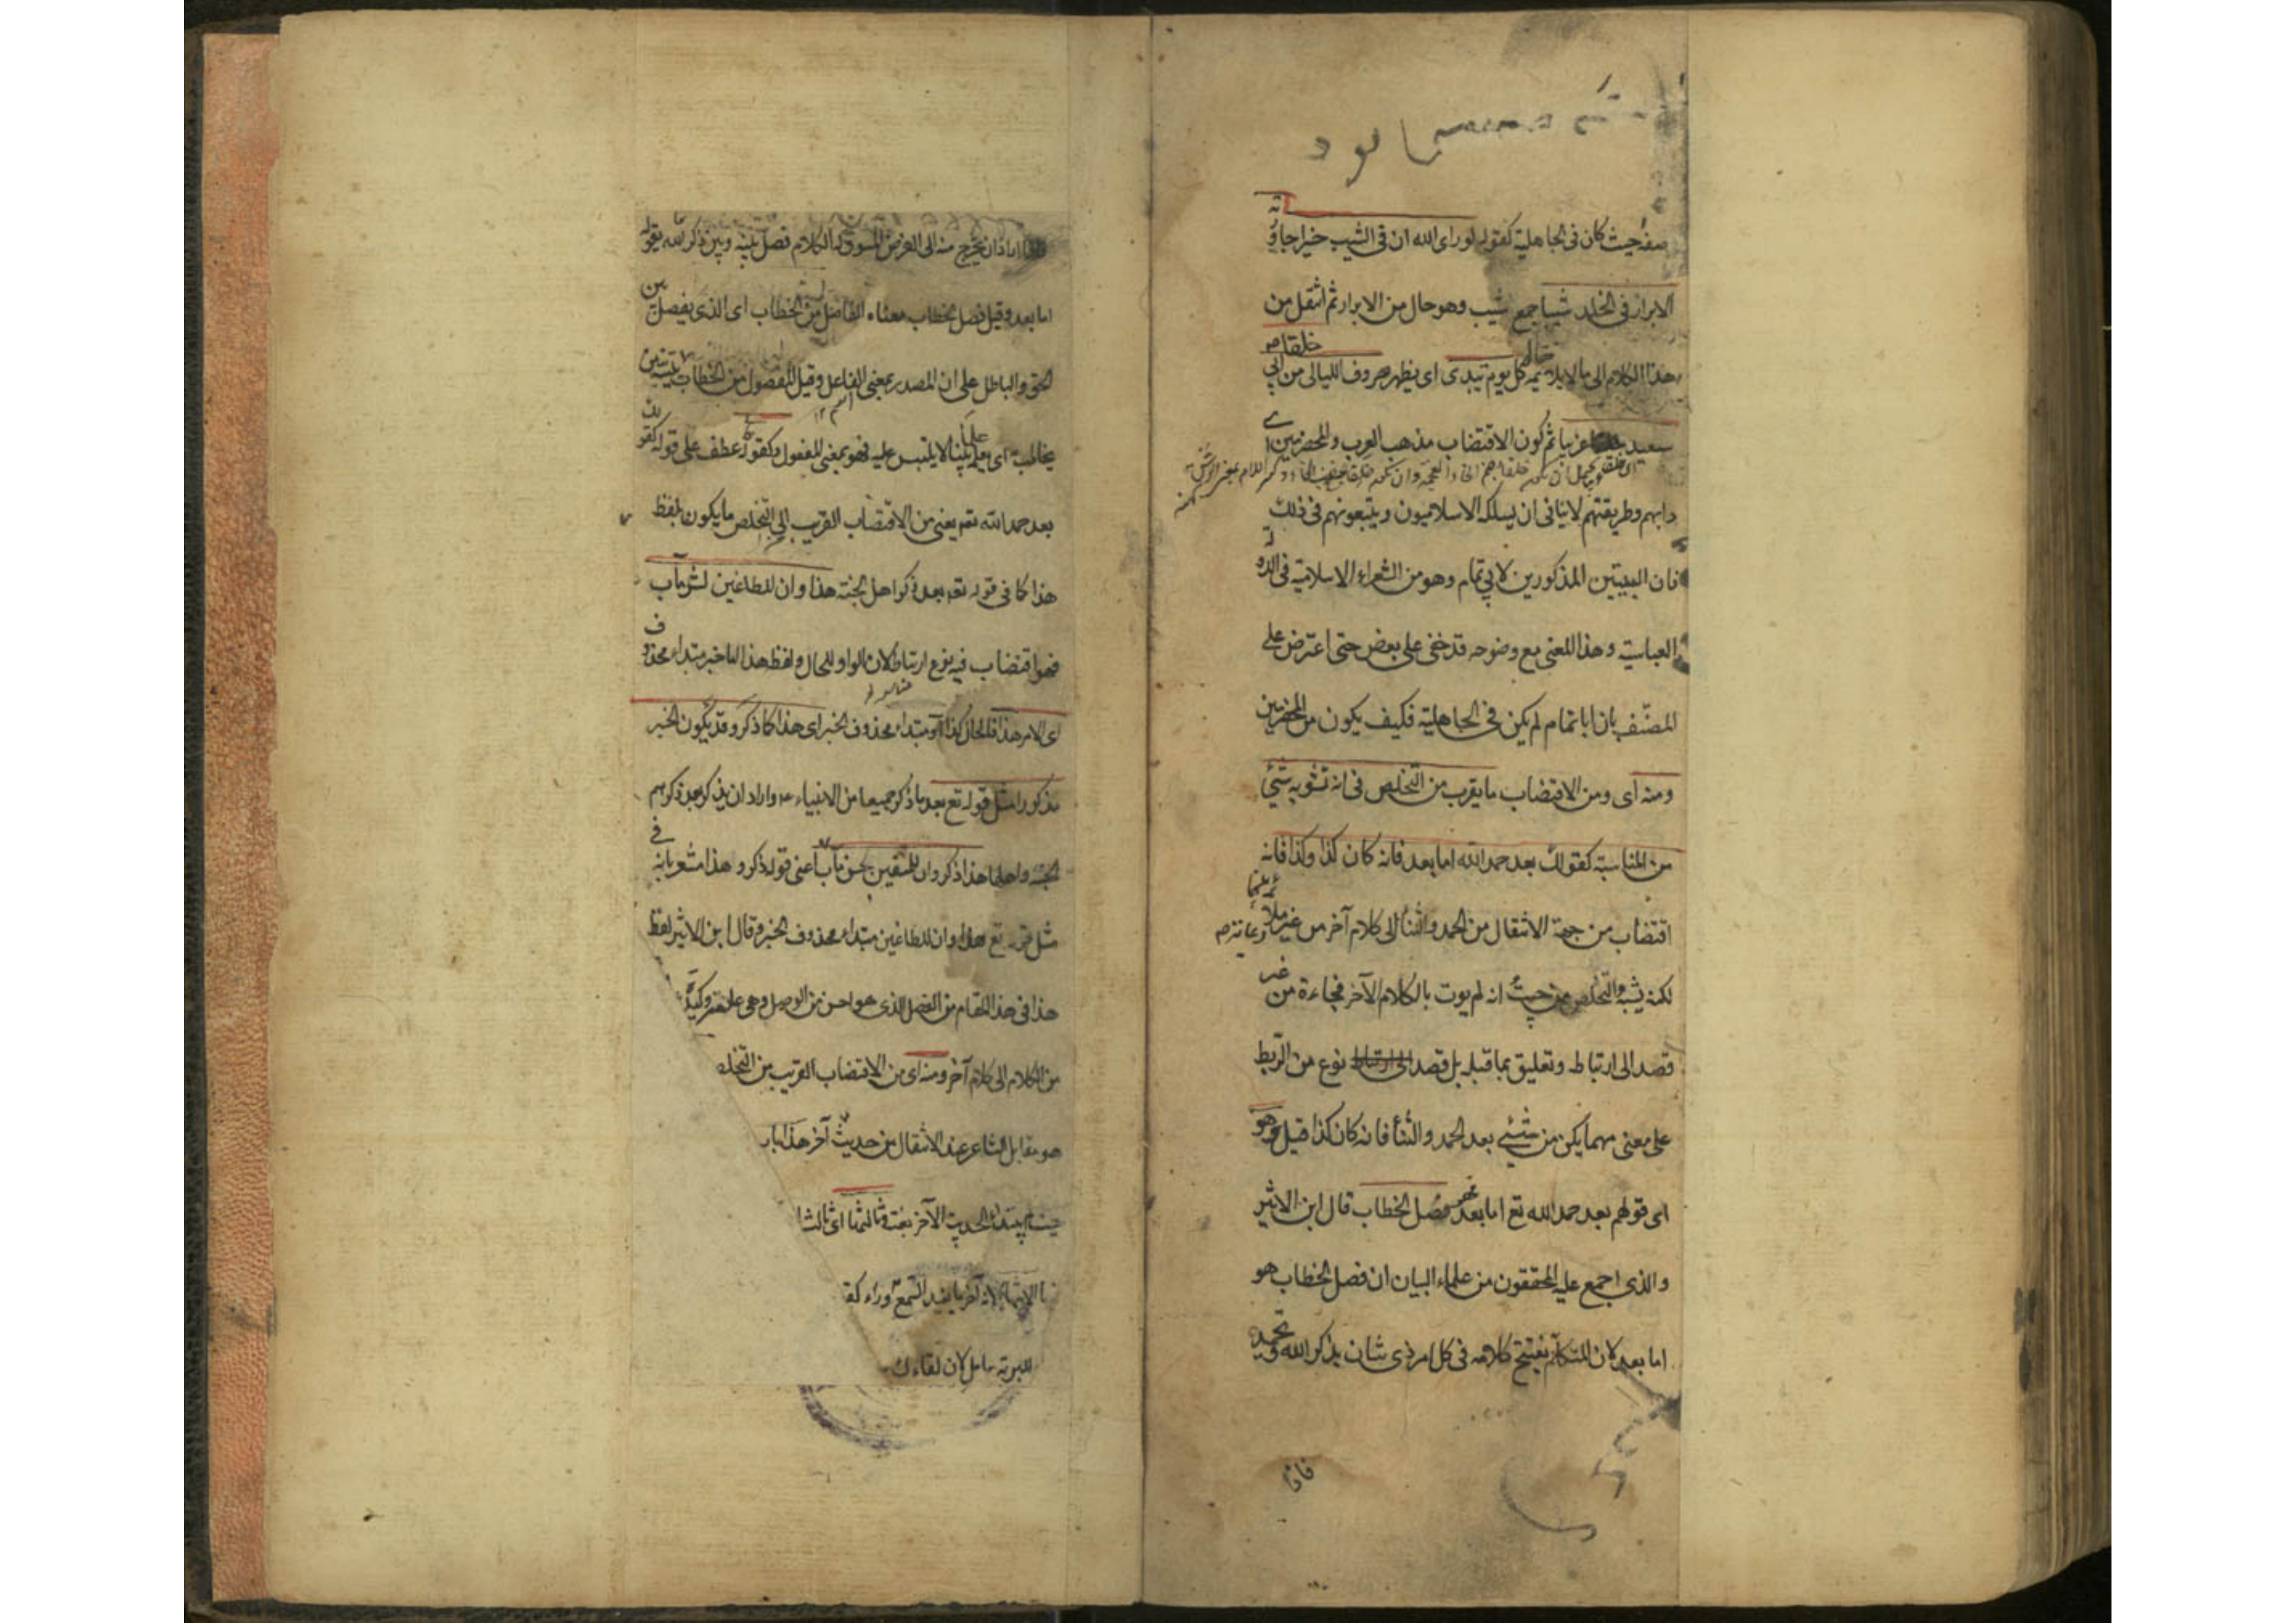 نصفه حيث كان فى الجاهلية كقوله لو راى الله ان فى الشيب خيرا جاورته
الابرار فى الخلد شيبا جمع شيب وهو حال من الابرار ثم انتقل من
هذا الكلام الى ما لا يلائمه فقال كل يوم تبدى اى يظهر صروف الليالى خلقا من ابى
سعيد غريبا ثم كون الاقتضاب مذهب العرب والمخضرمين اى
دابهم وطريقتهم لا ينافى ان يسلكه الاسلاميون ويتبعونهم فى ذلك
فان البيتين المذكورين لابى تمام وهو من الشعراء الاسلامية فى الدولة
العباسية وهذا المعنى مع وضوحه قد خفى على بعض حتى اعترض على
المصنف بان ابا تمام لم يكن فى الجاهلية فكيف يكون من المخضرمين
ومنه اى ومن الاقتضاب ما يقرب من التخلص فى انه تشوبه شئ
من المناسبة كقولك بعد حمد الله اما بعد فانه كان كذا وكذا فانه
اقتضاب من جهة الانتقال من الحمد والثنا الى كلام آخر من غير ملائمة بينهما
لكنه يشبه التخلص من حيث انه لم يوت بالكلام الآخر فجاءة من غير
قصد الى ارتباط وتعليق بما قبله بل قصد نوع من الربط
على معنى مهما يكن من شئ بعد الحمد والثنا فانه كان كذا قيل وهو
اى قولهم بعد حمد الله تع اما بعد فهو فصل الخطاب قال ابن الاثير
والذى اجمع عليه المحققون من علماء البيان ان فصل الخطاب هو
اما بعد لان المتكلم يفتتح كلامه فى كل امر ذى شان بذكر الله وتحميده
فاذا
اراد ان يخرج منه الى الغرض المسوق له الكلام فصل بينه وبين ذكر الله بقوله
اما بعد وقيل فصل الخطاب معناه الفاصل من الخطاب اى الذى يفصل بين
الحق والباطل على ان المصدر بمعنى الفاعل وقيل المفصول من الخطاب
يخاطب به اى يعلمه بينا لا يلتبس عليه فهو بمعنى المفعول وكقوله عطف على قوله كقولك
بعد حمد الله تع يعنى من الاقتضاب القريب الى التخلص ما يكون بلفظ
هذا كما فى قوله تع بعد ذكر اهل الجنة هذا وان للطاغين لشر مآب
فهو اقتضاب فيه نوع ارتباط لان الواو للحال ولفظ هذا اما خبر مبتداء محذوف
اى الامر هذا والحال كذا او مبتداء محذوف الخبر اى هذا كما ذكر وقد يكون الخبر
مذكورا مثل قوله تع بعد ما ذكر جميعا من الانبياء واراد ان يذكر بعد ذكرهم
الجنة واهلها هذا ذكر وان للمتقين لحسن مآب اعنى قوله ذكر وهذا مشعر بانه فى
مثل قوله تع هذا وان للطاغين مبتداء محذوف الخبر وقال ابن الاثير لفظ
هذا فى هذا المقام من الفصل الذى هو احسن من الوصل وهى علاقة وكيدة
من الكلام الى كلام آخر ومنه اى من الاقتضاب القريب من التخلص
هو مقابل الشاعر عند الانتقال من حديث آخر هذا باب
الحديث الآخر بغتة وثالثها اى ثالث
للبرية سامل لان لقاءك